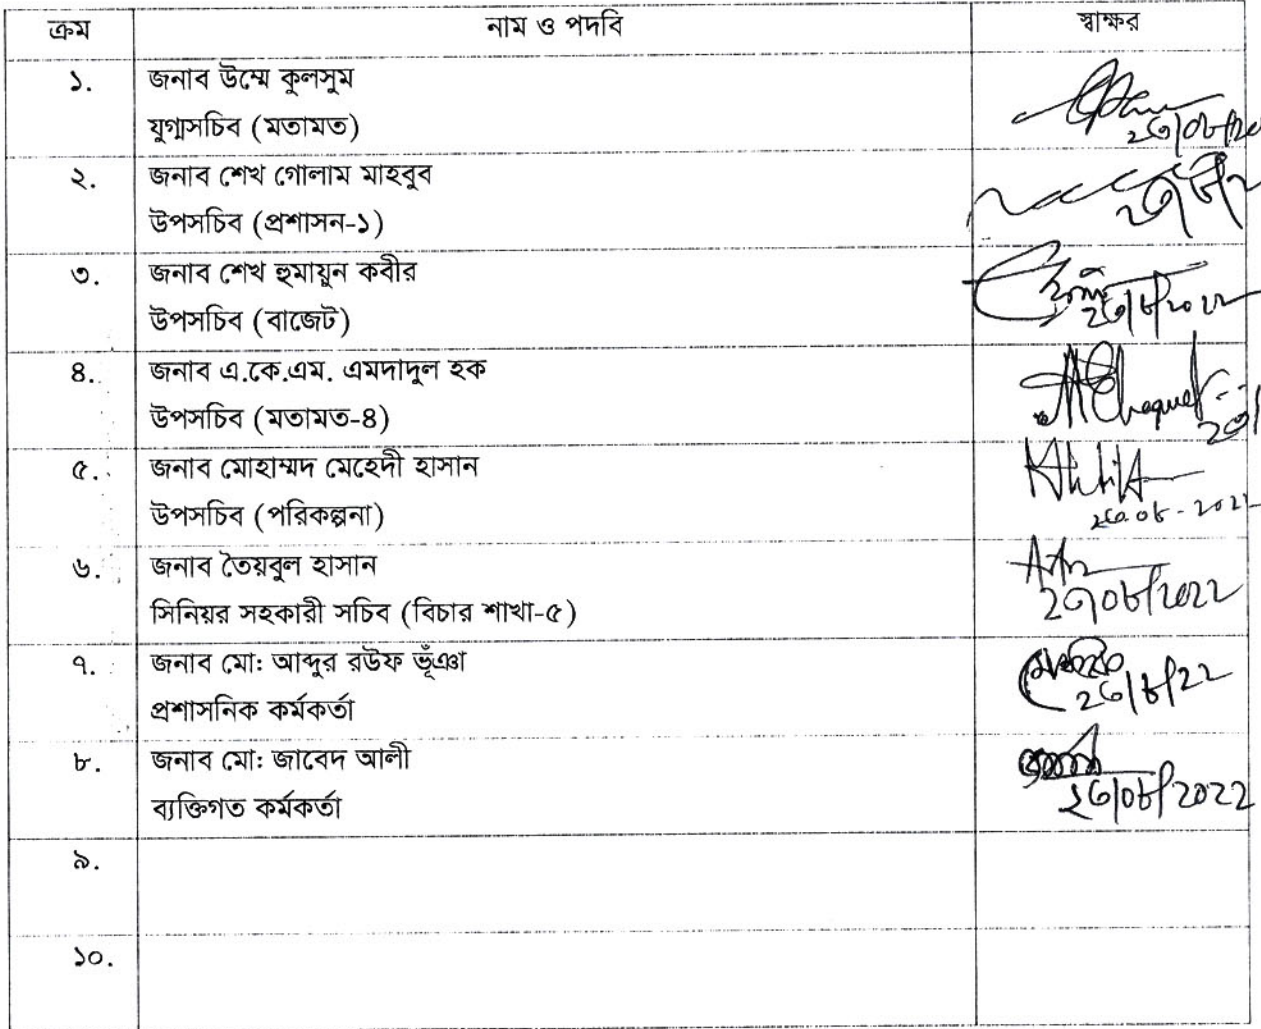 ক্রম নাম ও পদবি স্বাক্ষর
১. জনাব উম্মে কুলসুম
যুগ্মসচিব (মতামত)
২. জনাব শেখ গোলাম মাহবুব
উপসচিব (প্রশাসন-১)
৩. জনাব শেখ হুমায়ুন কবীর
উপসচিব (বাজেট)
৪. জনাব এ.কে.এম. এমদাদুল হক
উপসচিব (মতামত-৪)
৫. জনাব মোহাম্মদ মেহেদী হাসান
উপসচিব (পরিকল্পনা)
৬. জনাব তৈয়বুল হাসান
সিনিয়র সহকারী সচিব (বিচার শাখা-৫)
৭. জনাব মো: আব্দুর রউফ ভূঁঞা
প্রশাসনিক কর্মকর্তা
৮. জনাব মো: জাবেদ আলী
ব্যক্তিগত কর্মকর্তা
৯.
১০.